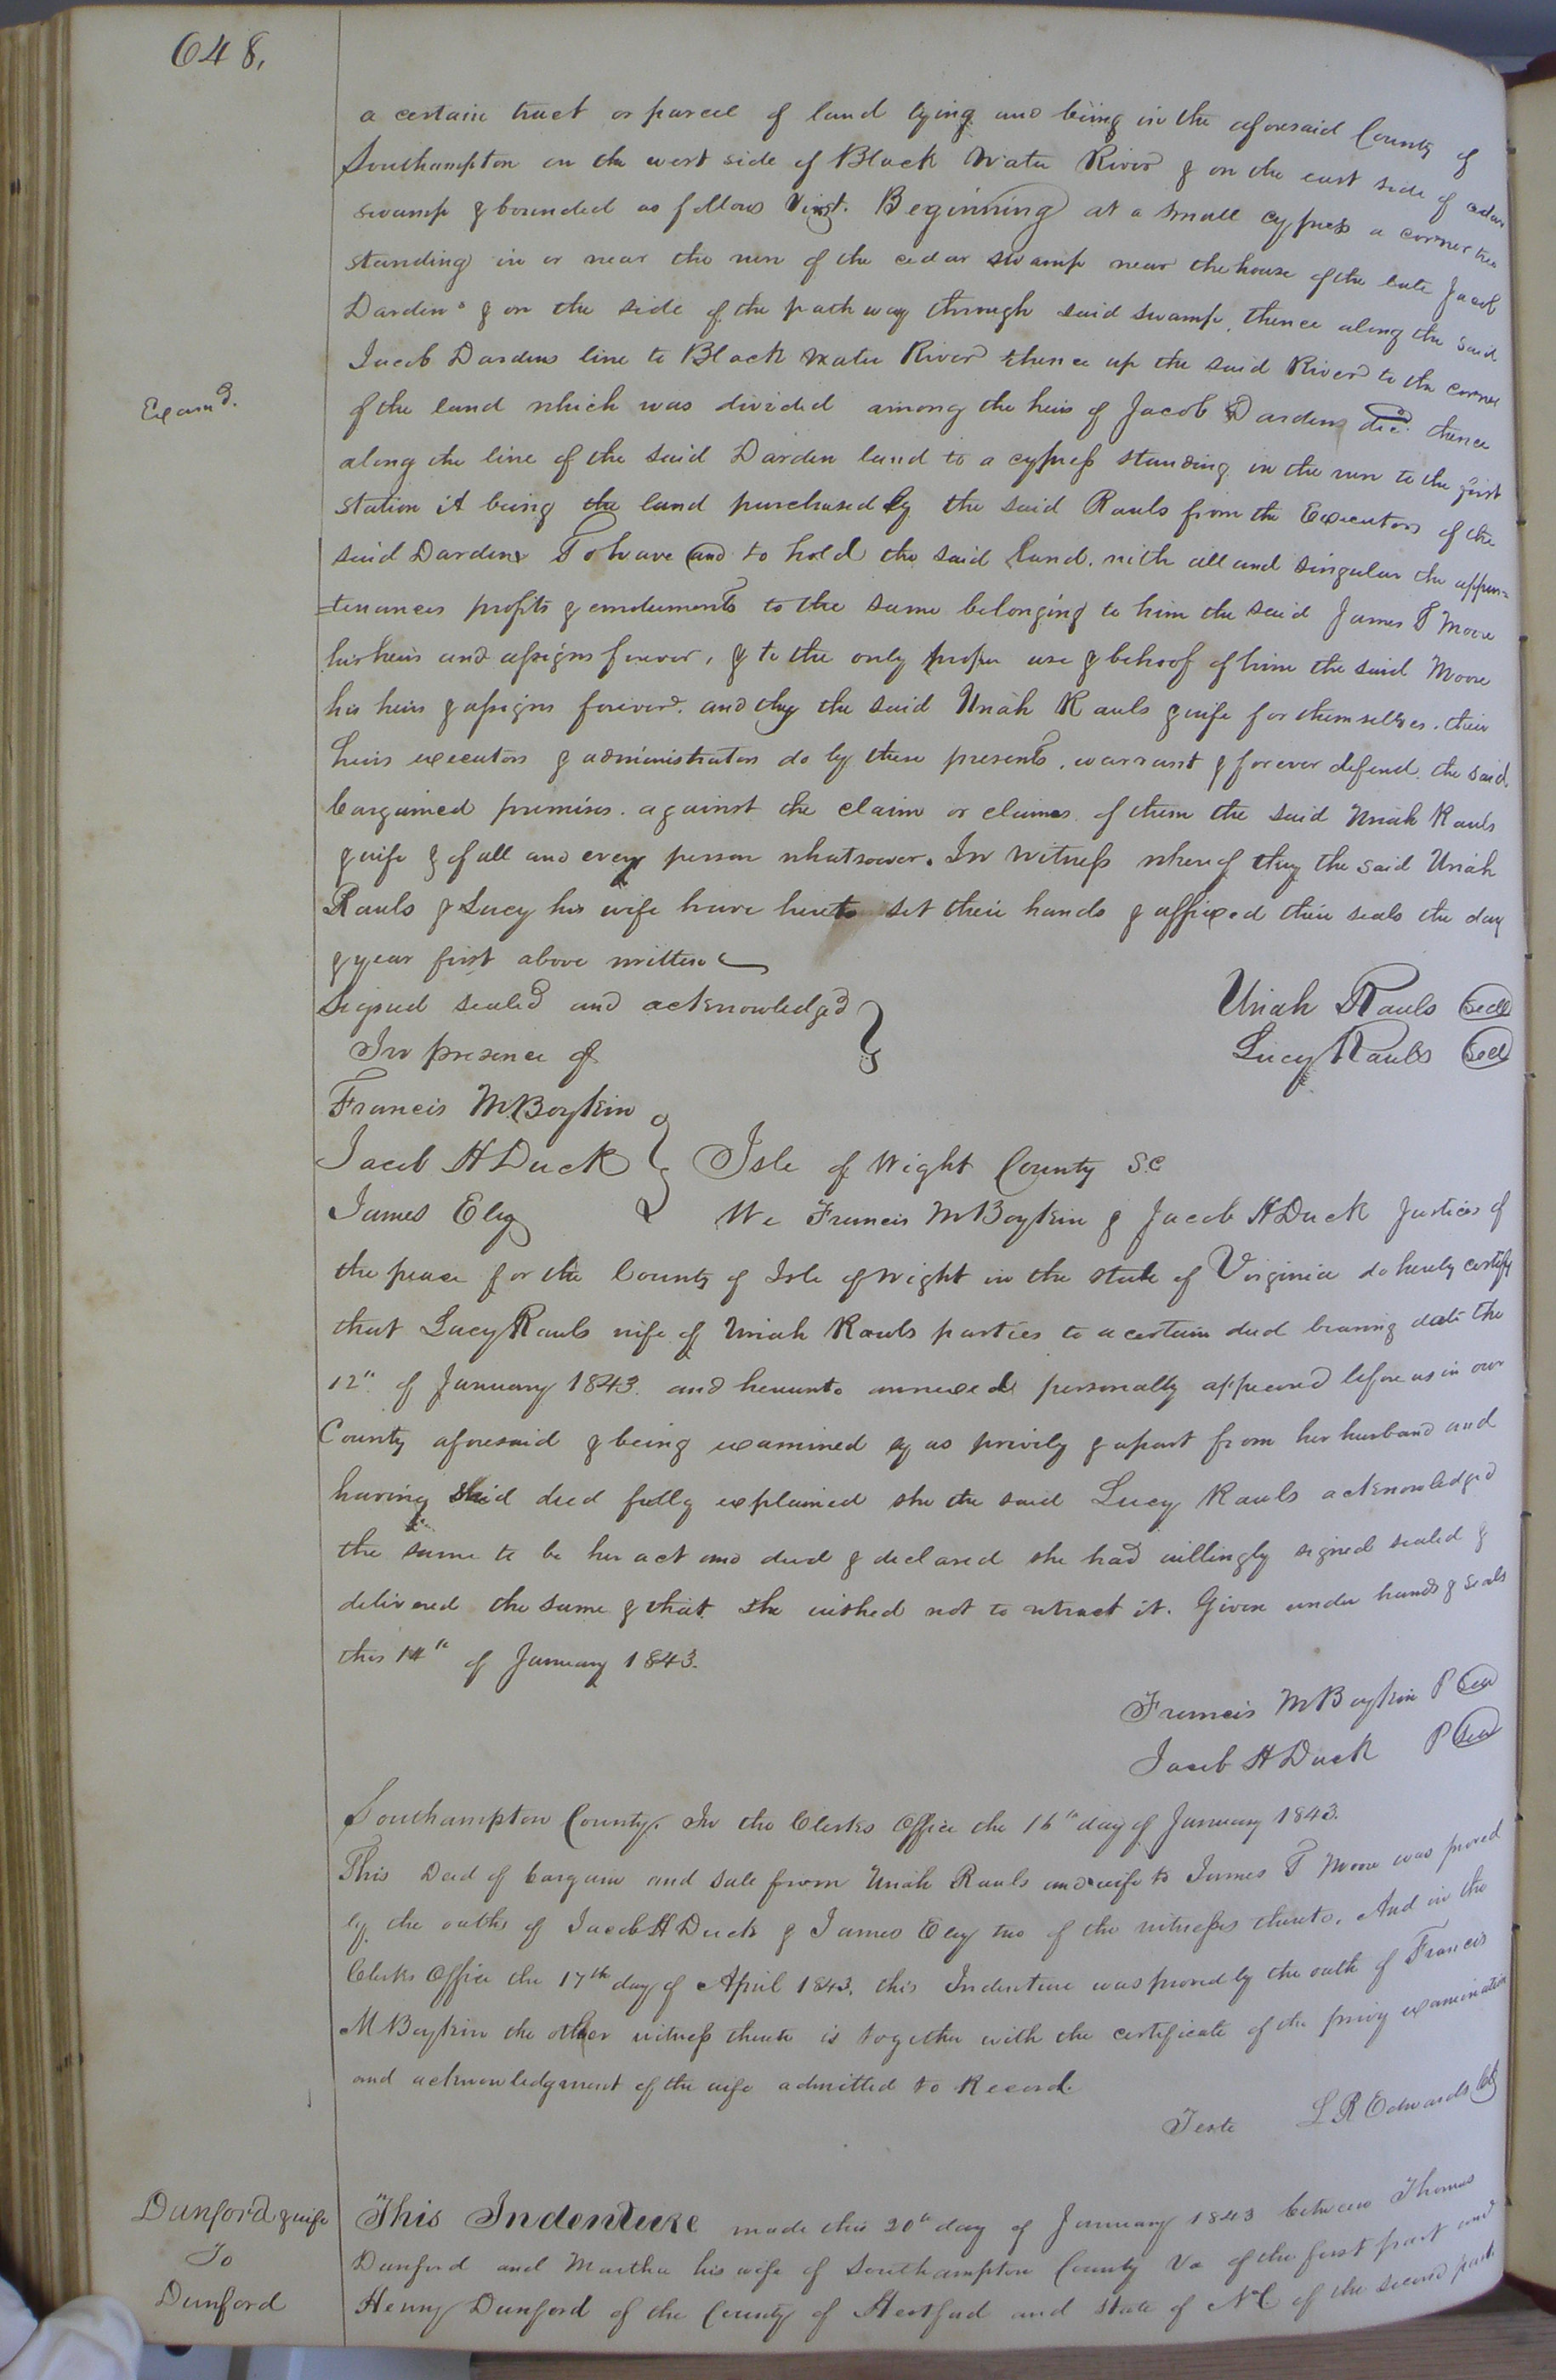 648.
a certain tract or parcel of land lying and being in the aforesaid County of
Southampton on the west side of Black Water River & on the east side of cedar
swamp & bounded as follows Vizt. Beginning at a small cypress a corner tree
standing in or near the run of the cedar swamp near the house of the late Jacob
Dardens & on the side of the path way through said swamp, thence along the said
Jacob Dardens line to Black water River thence up the said River to the corner
Examd.
of the land which was divided among the heirs of Jacob Dardens decd. thence
along the line of the said Darden land to a cypress standing in the run to the first
station it being the land purchased by the said Rauls from the Executors of the
said Dardens To have and to hold the said land. with all and singular the appur=
=tenances profits & emoluments to the same belonging to him the said James T Moore
his heirs and assigns forever, & to the only proper use & behoof of him the said Moore
his heirs & assigns forever. and they the said Uriah Rauls & wife for themselves. their
heirs executors & administrators do by these presents. warrant & forever defend. the said
bargained premises. against the claim or claims of them the said Uriah Rauls
& wife & of all and every person whatsoever. In witness whereof they the said Uriah
Rauls & Lucy his wife have hereto set their hands & affixed their seals the day
& year first above written
Signed sealed and acknowledged
In presence of
Uriah Rauls Seal
Lucy Rauls Seal
Francis M Boykin
Jacob H Duck
James Eley
Isle of Wight County S.C
We Francis M Boykin & Jacob H Duck Justices of
the peace for the County of Isle of Wight in the state of Virginia do hereby certify
that Lucy Rauls wife of Uriah Rauls parties to a certain deed bearing date the
12th of January 1843. and hereunto annexed personally appeared before us in our
County aforesaid & being examined by us privily & apart from her husband and
having said deed fully explained she the said Lucy Rauls acknowledged
the same to be her act and deed & declared she had willingly signed sealed &
delivered the same & that she wished not to retract it. Given under hands & seals
this 14th of January 1843.
Francis M Boykin P Seal
Jacob H Duck P Seal
Southampton County. In the Clerks Office the 16th day of January 1843.
This Deed of bargain and sale from Uriah Rauls and wife to James T Moore was proved
by the oaths of Jacob H Duck & James Eley two of the witnesses thereto. And in the
Clerks Office the 17th day of April 1843, this Indenture was proved by the oath of Francis
M Boykin the other witness thereto is together with the certificate of the privy examination
and acknowledgment of the wife admitted to Record.
Teste L R Edwards Clk
Dunford & wife
To
Dunford
This Indenture made this 20th day of January 1843 between Thomas
Dunford and Martha his wife of Southampton County Va of the first part and
Henry Dunford of the County of Hertford and state of N C of the second part